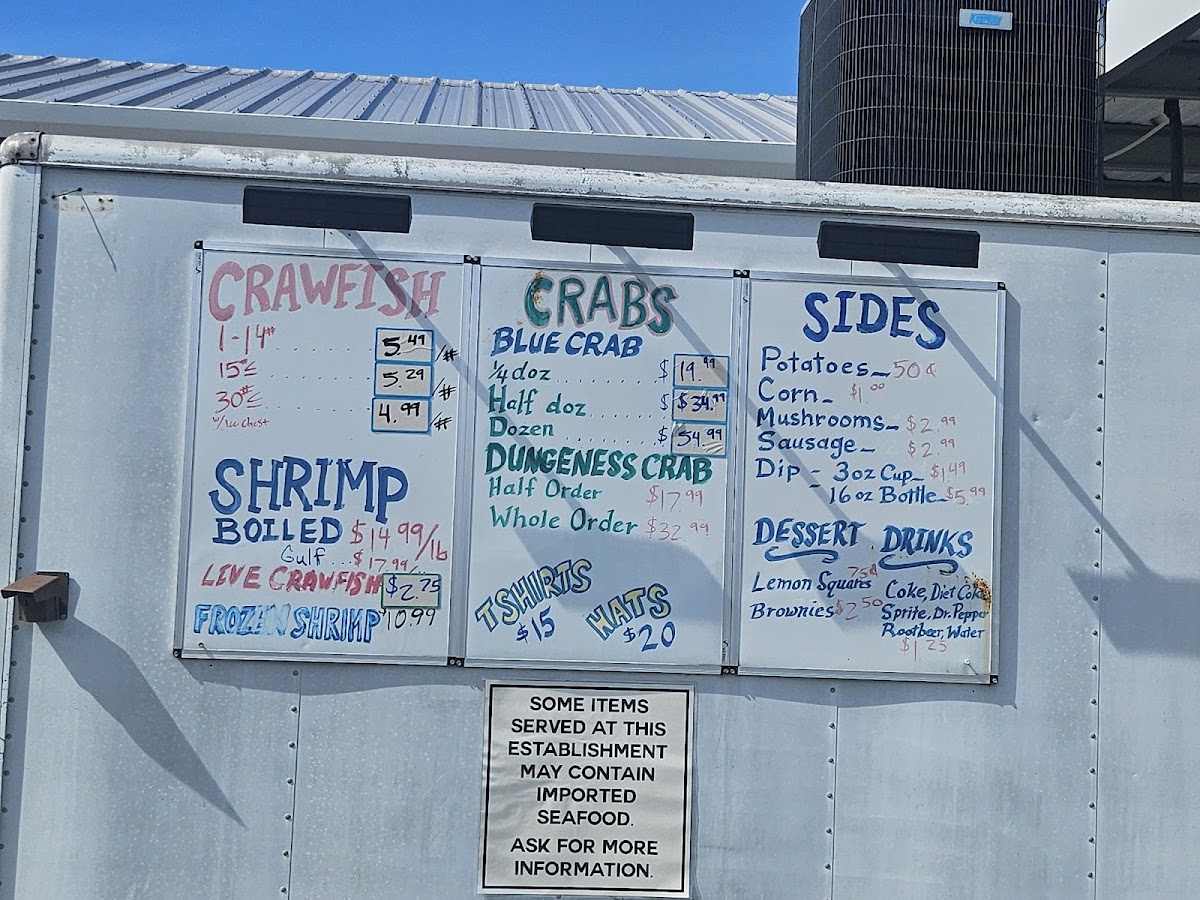 CRAWFISH
1-14# . . . . . . 5.49 /#
15# . . . . . . 5.29 /#
30# . . . . . . 4.99 /#
w/ Ice Chest
SHRIMP
BOILED $14.99/lb
Gulf ... $17.99/
LIVE CRAWFISH $2.75
FROZEN SHRIMP 10.99
CRABS
BLUE CRAB
1/4 doz . . . . . . $ 19.99
Half doz . . . . . . $ $34.99
Dozen . . . . . . $ 54.99
DUNGENESS CRAB
Half Order $17.99
Whole Order $32.99
TSHIRTS
$15
HATS
$20
SIDES
Potatoes - 50¢
Corn - $1.00
Mushrooms - $2.99
Sausage - $2.99
Dip - 3oz Cup - $1.49
- 16oz Bottle - $5.99
DESSERT
Lemon Squares 75¢
Brownies $2.50
DRINKS
Coke, Diet Coke
Sprite, Dr. Pepper
Rootbeer, Water
$1.25
SOME ITEMS
SERVED AT THIS
ESTABLISHMENT
MAY CONTAIN
IMPORTED
SEAFOOD.
ASK FOR MORE
INFORMATION.